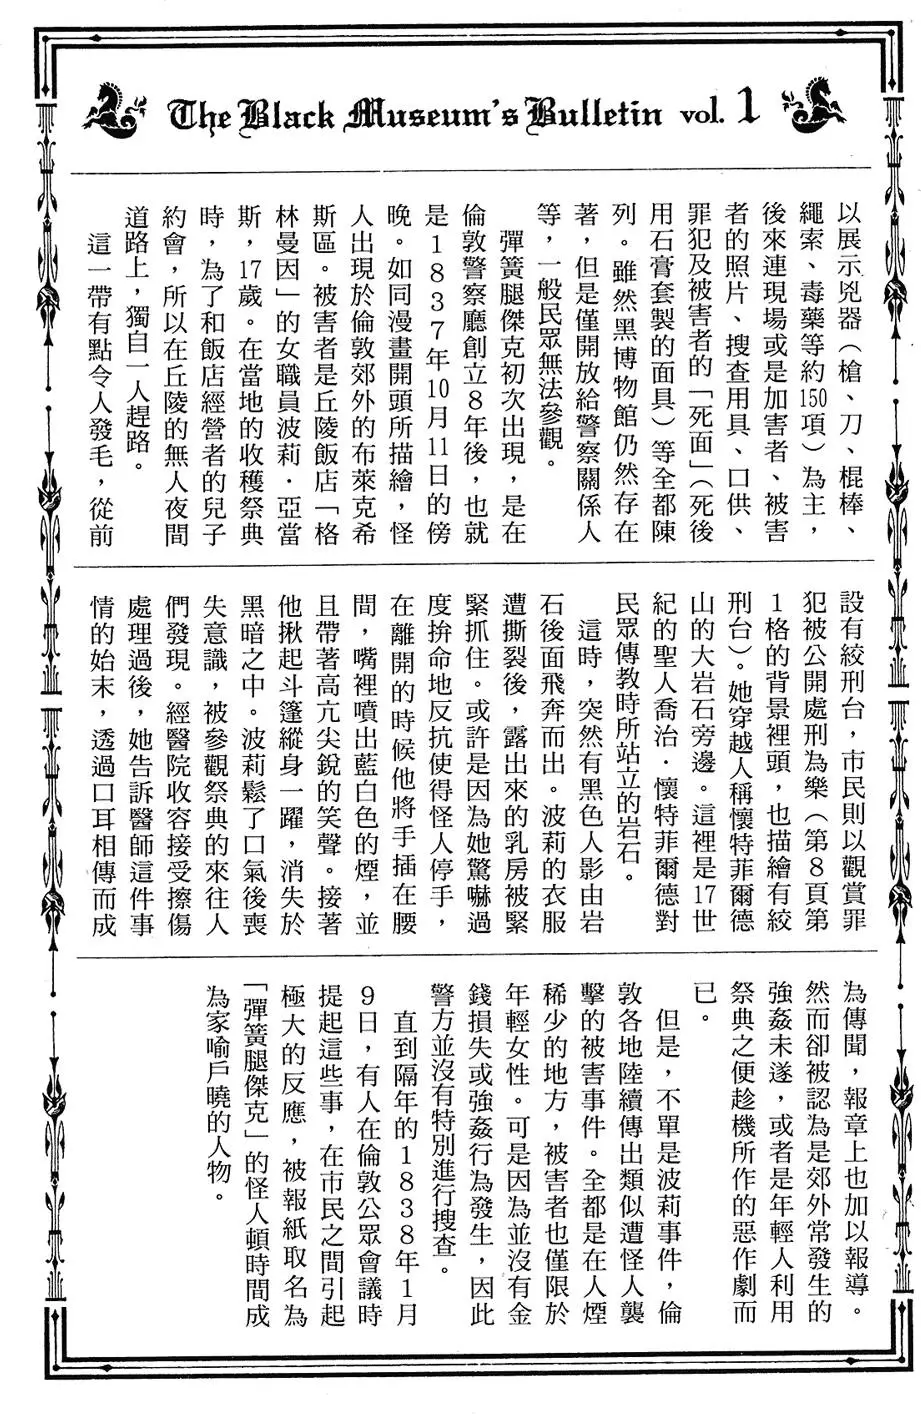 The Black Museum's Bulletin vol. 1
以展示兇器（槍、刀、棍棒、
繩索、毒藥等約150項）為主，
後來連現場或是加害者、被害
者的照片、搜查用具、口供、
罪犯及被害者的「死面」（死後
用石膏套製的面具）等全都陳
列。雖然黑博物館仍然存在
著，但是僅開放給警察關係人
等，一般民眾無法參觀。
彈簧腿傑克初次出現，是在
倫敦警察廳創立8年後，也就
是1837年10月11日的傍
晚。如同漫畫開頭所描繪，怪
人出現於倫敦郊外的布萊克希
斯區。被害者是丘陵飯店「格
林曼因」的女職員波莉．亞當
斯，17歲。在當地的收穫祭典
時，為了和飯店經營者的兒子
約會，所以在丘陵的無人夜間
道路上，獨自一人趕路。
這一帶有點令人發毛，從前
設有絞刑台，市民則以觀賞罪
犯被公開處刑為樂（第8頁第
1格的背景裡頭，也描繪有絞
刑台）。她穿越人稱懷特菲爾德
山的大岩石旁邊。這裡是17世
紀的聖人喬治．懷特菲爾德對
民眾傳教時所站立的岩石。
這時，突然有黑色人影由岩
石後面飛奔而出。波莉的衣服
遭撕裂後，露出來的乳房被緊
緊抓住。或許是因為她驚嚇過
度拚命地反抗使得怪人停手，
在離開的時候他將手插在腰
間，嘴裡噴出藍白色的煙，並
且帶著高亢尖銳的笑聲。接著
他揪起斗篷縱身一躍，消失於
黑暗之中。波莉鬆了口氣後喪
失意識，被參觀祭典的來往人
們發現。經醫院收容接受擦傷
處理過後，她告訴醫師這件事
情的始末，透過口耳相傳而成
為傳聞，報章上也加以報導。
然而卻被認為是郊外常發生的
強姦未遂，或者是年輕人利用
祭典之便趁機所作的惡作劇而
已。
但是，不單是波莉事件，倫
敦各地陸續傳出類似遭怪人襲
擊的被害事件。全都是在人煙
稀少的地方，被害者也僅限於
年輕女性。可是因為並沒有金
錢損失或強姦行為發生，因此
警方並沒有特別進行搜查。
直到隔年的1838年1月
9日，有人在倫敦公眾會議時
提起這些事，在市民之間引起
極大的反應，被報紙取名為
「彈簧腿傑克」的怪人頓時間成
為家喻戶曉的人物。